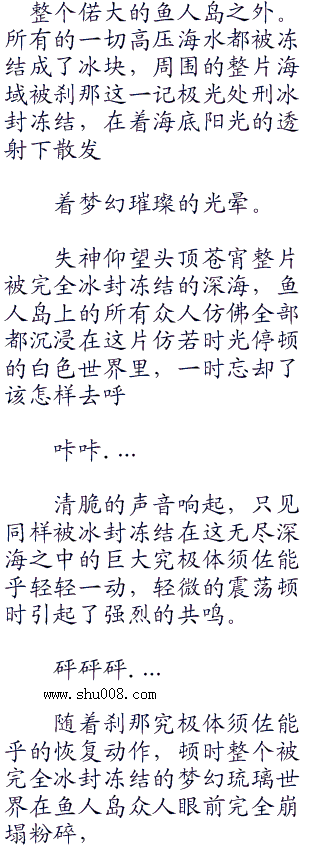 整个偌大的鱼人岛之外。
所有的一切高压海水都被冻
结成了冰块，周围的整片海
域被刹那这一记极光处刑冰
封冻结，在着海底阳光的透
射下散发
着梦幻璀璨的光晕。
失神仰望头顶苍宵整片
被完全冰封冻结的深海，鱼
人岛上的所有众人仿佛全部
都沉浸在这片仿若时光停顿
的白色世界里，一时忘却了
该怎样去呼
咔咔....
清脆的声音响起，只见
同样被冰封冻结在这无尽深
海之中的巨大究极体须佐能
乎轻轻一动，轻微的震荡顿
时引起了强烈的共鸣。
砰砰砰....
www.shu008.com
随着刹那究极体须佐能
乎的恢复动作，顿时整个被
完全冰封冻结的梦幻琉璃世
界在鱼人岛众人眼前完全崩
塌粉碎，